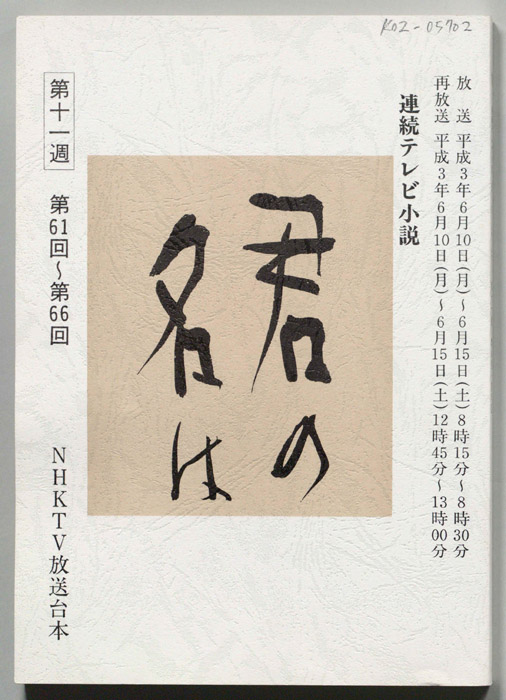 K02-05702
放　送 平成3年6月10日(月)～6月15日(土)8時15分～8時30分
再放送 平成3年6月10日(月)～6月15日(土)12時45分～13時00分
連続テレビ小説
君の
名は
第十一週　第61回～第66回
NHKTV放送台本